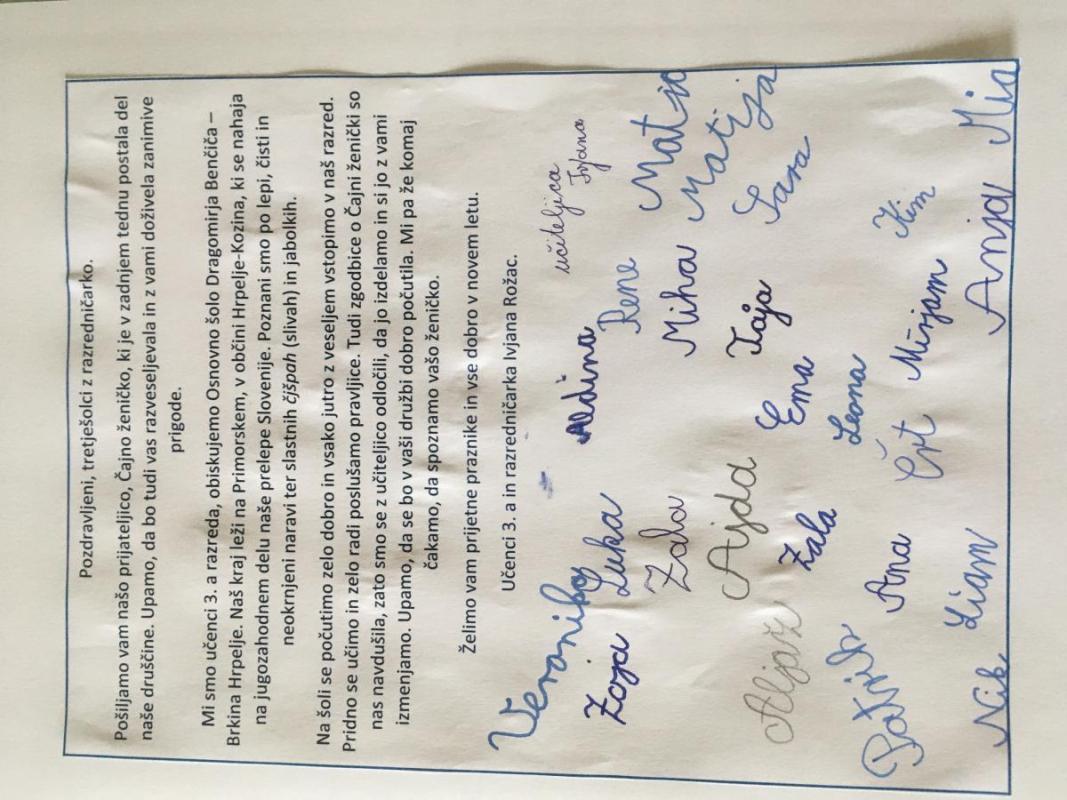 Pozdravljeni, tretješolci z razredničarko.
Pošiljamo vam našo prijateljico, Čajno ženičko, ki je v zadnjem tednu postala del
naše druščine. Upamo, da bo tudi vas razveseljevala in z vami doživela zanimive
prigode.
Mi smo učenci 3. a razreda, obiskujemo Osnovno šolo Dragomirja Benčiča –
Brkina Hrpelje. Naš kraj leži na Primorskem, v občini Hrpelje-Kozina, ki se nahaja
na jugozahodnem delu naše prelepe Slovenije. Poznani smo po lepi, čisti in
neokrnjeni naravi ter slastnih čišpah (slivah) in jabolkih.
Na šoli se počutimo zelo dobro in vsako jutro z veseljem vstopimo v naš razred.
Pridno se učimo in zelo radi poslušamo pravljice. Tudi zgodbice o Čajni ženički so
nas navdušila, zato smo se z učiteljico odločili, da jo izdelamo in si jo z vami
izmenjamo. Upamo, da se bo v vaši družbi dobro počutila. Mi pa že komaj
čakamo, da spoznamo vašo ženičko.
Želimo vam prijetne praznike in vse dobro v novem letu.
Učenci 3. a in razredničarka Ivjana Rožac.
Veronika Aldina učiteljica
Ivjana
Zoja Luka Rene Matja
Zala Miha Matija
Aljaž Ajda Taja Sara
Zala Ema
Patrik Ana Leona
Črt Mirjam Kim
Nik Liam Anja Mia